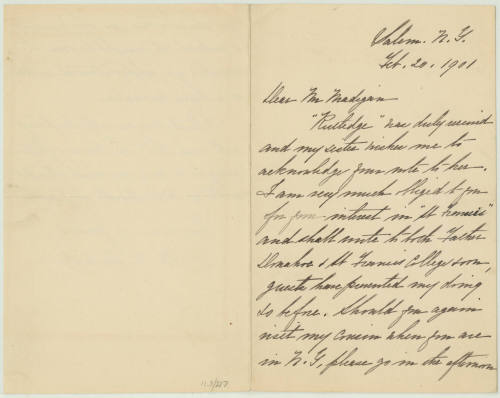 Salem. N. Y.
Feb. 20. 1901
Dear Mr Madigan
"Rutledge" was duly received
and my sister wishes me to
acknowledge your note to her.
I am very much obliged to you
for your interest in "St Francis"
and shall write to both Father
Donahoe & St Francis College soon,
guests have prevented my doing
so before. Should you again
visit my cousin when you are
in N. Y., please go in the afternoon